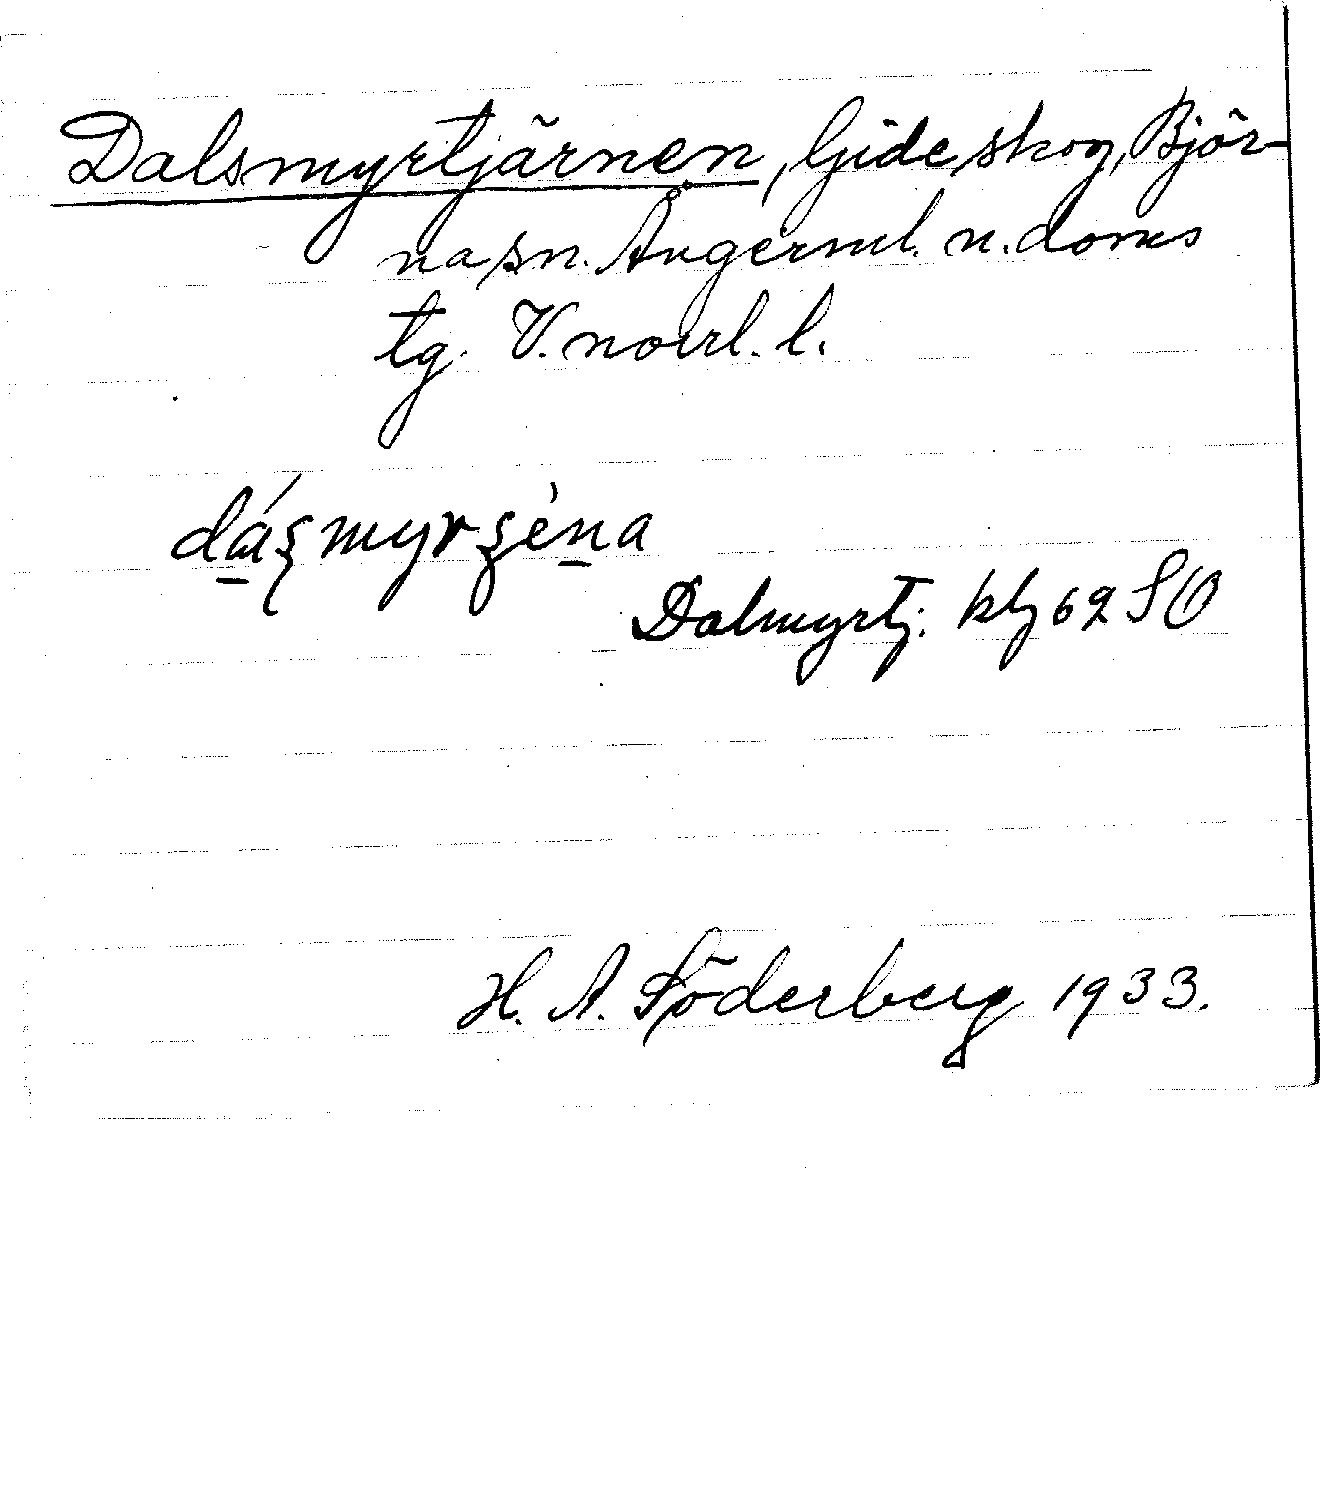 Dalsmyrtjärnen, Gideskog, Björ-
na sn. Ångerml. n. doms
tg. V. norrl. l.
Dalmyrtj. kbl 62 SO
H. A. Söderberg 1933.